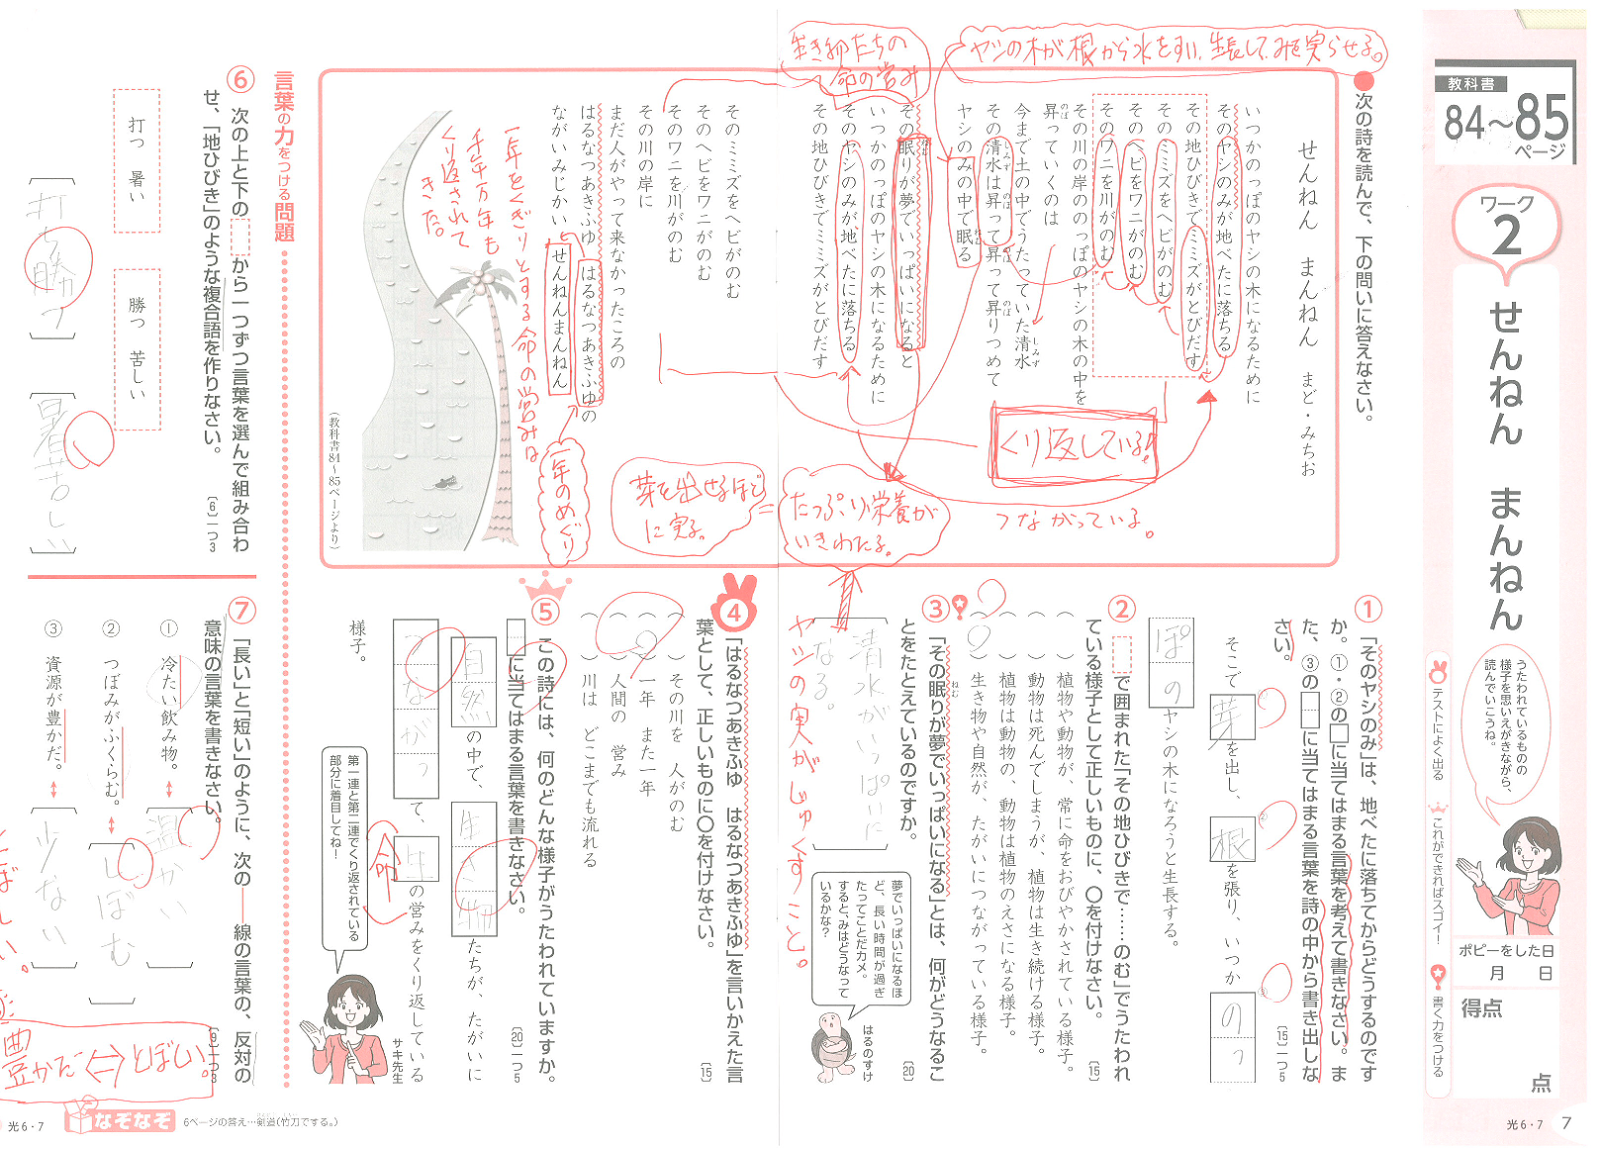 教科書
84〜85
ページ
ワーク
2
せんねん まんねん
うたわれているものの
様子を思いえがきながら、
読んでいこうね。
テストによく出る
これができればスゴイ!
書く力をつける
ポピーをした日
月 日
得点
点
光6・7 7
●次の詩を読んで、下の問いに答えなさい。
せんねん まんねん まど・みちお
いつかのっぽのヤシの木になるために
そのヤシのみが地べたに落ちる
その地ひびきでミミズがとびだす
そのミミズをヘビがのむ
そのヘビをワニがのむ
そのワニを川がのむ
その川の岸ののっぽのヤシの木の中を
昇っていくのは
今まで土の中でうたっていた清水
その清水は昇って昇って昇りつめて
ヤシのみの中で眠る
その眠りが夢でいっぱいになると
いつかのっぽのヤシの木になるために
そのヤシのみが地べたに落ちる
その地ひびきでミミズがとびだす
そのミミズをヘビがのむ
そのヘビをワニがのむ
そのワニを川がのむ
その川の岸に
まだ人がやって来なかったころの
はるなつあきふゆ はるなつあきふゆの
ながいみじかい せんねんまんねん
(教科書84〜85ページより)
ヤシの木が根から水をすい、生長して、みを実らせる。
生き物たちの
命の営み
くり返している!
つながっている。
たっぷり栄養が
いきわたる。
芽を出せるほど
に実る。
一年のめぐり
一年をくぎりとする命の営みは
千年万年も
くり返されて
きた。
① 「そのヤシのみ」は、地べたに落ちてからどうするのです
か。①・②の□に当てはまる言葉を考えて書きなさい。ま
た、③の□に当てはまる言葉を詩の中から書き出しな
さい。
〔15〕一つ5
そこで芽を出し、根を張り、いつかのっ
ぽのヤシの木になろうと生長する。
② □で囲まれた「その地ひびきで……のむ」でうたわれ
ている様子として正しいものに、○を付けなさい。
〔15〕
( )植物や動物が、常に命をおびやかされている様子。
( )動物は死んでしまうが、植物は生き続ける様子。
( )植物は動物の、動物は植物のえさになる様子。
(○)生き物や自然が、たがいにつながっている様子。
③ 「その眠りが夢でいっぱいになる」とは、何がどうなるこ
とをたとえているのですか。
〔20〕
清水がいっぱいに
なる。
ヤシの実がじゅくすこと。
夢でいっぱいになるほ
ど、長い時間が過ぎ
たってことだカメ。
すると、みはどうなって
いるかな?
はるのすけ
④ 「はるなつあきふゆ はるなつあきふゆ」を言いかえた言
葉として、正しいものに○を付けなさい。
〔15〕
( )その川を 人がのむ
(○)一年 また一年
( )人間の 営み
( )川は どこまでも流れる
⑤ この詩には、何のどんな様子がうたわれていますか。
□に当てはまる言葉を書きなさい。
〔20〕一つ5
自然の中で、生き物たちが、たがいに
つながって、生の営みをくり返している
命
様子。
第一連と第二連でくり返されている
部分に着目してね!
サキ先生
言葉の力をつける問題
⑥ 次の上と下の□から一つずつ言葉を選んで組み合わ
せ、「地ひびき」のような複合語を作りなさい。
〔6〕一つ3
打つ 暑い
勝つ 苦しい
打ち勝つ
暑苦しい
⑦ 「長い」と「短い」のように、次の――線の言葉の、反対の
意味の言葉を書きなさい。
〔9〕一つ3
① 冷たい飲み物。 ↔ 温かい
② つぼみがふくらむ。 ↔ しぼむ
③ 資源が豊かだ。 ↔ 少ない
豊かだ⇔とぼしい。
なぞなぞ
6ページの答え…剣道(竹刀でする。)
光6・7